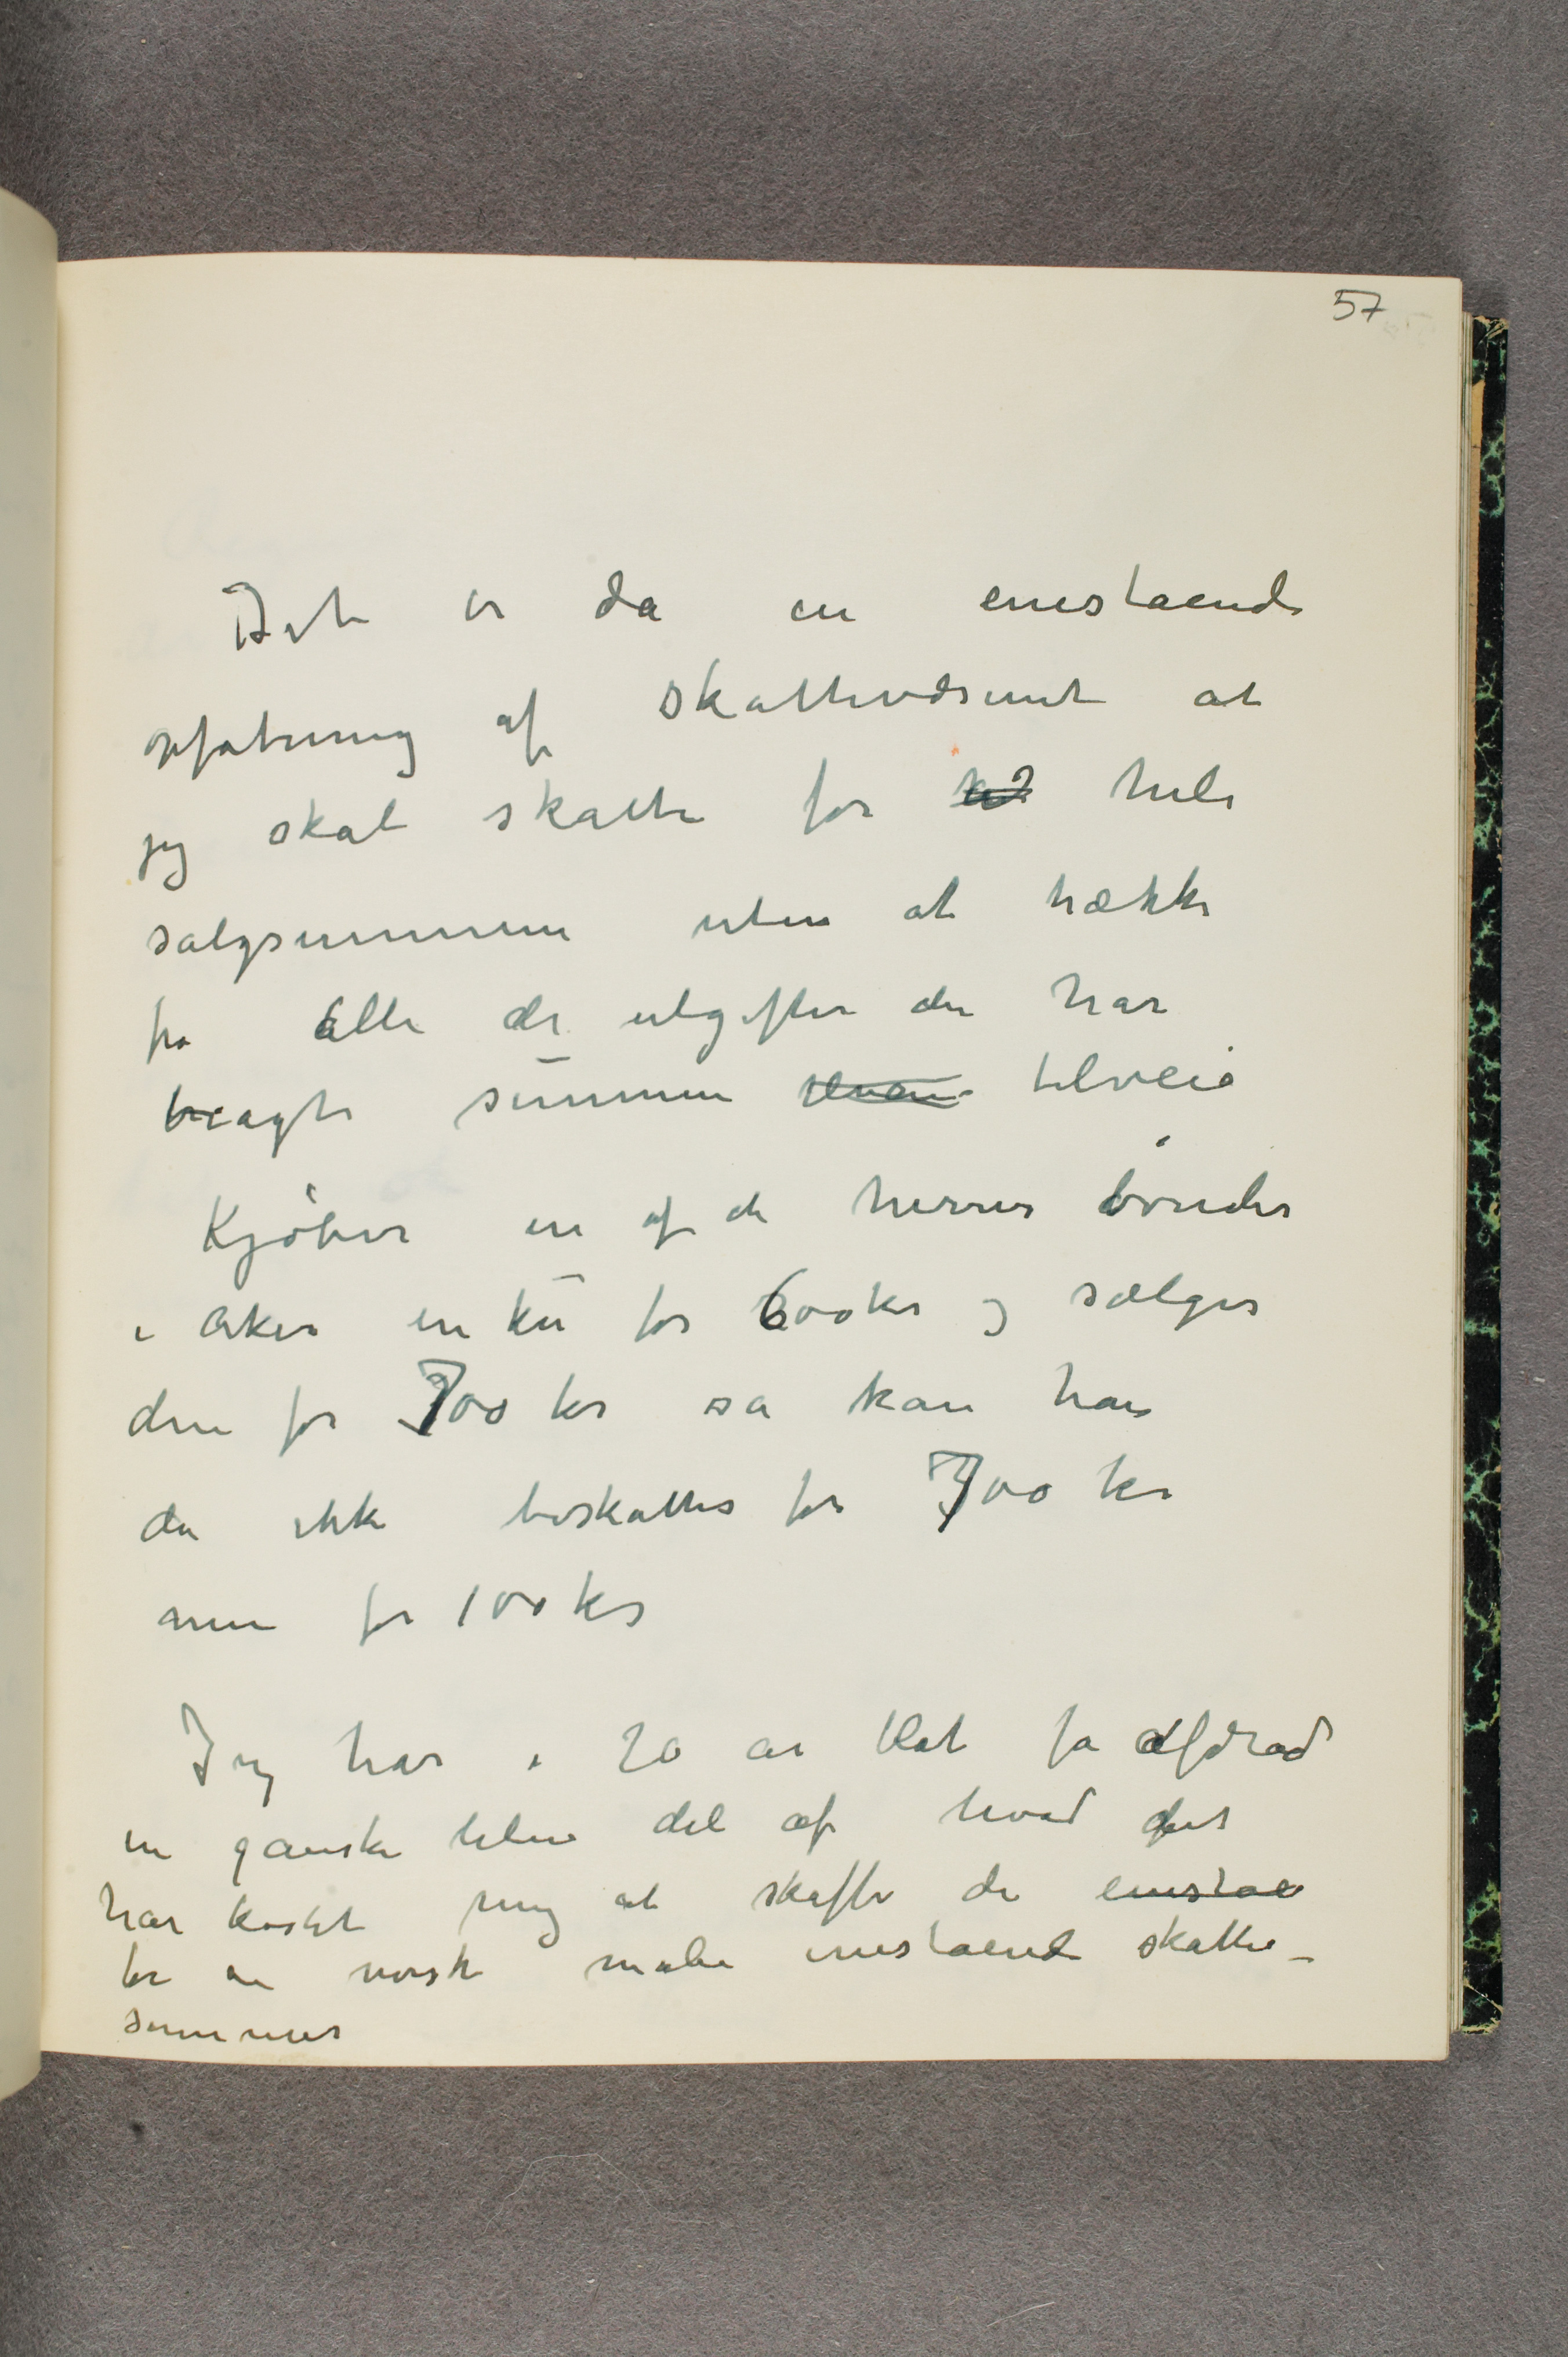 57
Det er da en enestaaende
opfatning af skattevæsenet at
jeg skal skatte for hele
salgsummen uten at trække
fra alle de utgifter der har
bragt summen tilveie
Kjöber en af de herrer bönder
i Aker en ku for 600 kr og sælger
den for 700 kr så kan han
da ikke beskattes for 700 kr
men for 100 kr
Jeg har i 20 år blot fa afdrad
en ganske liten del af hvad det
har kostet mig at skaffe de enestae
for en norsk maler enestaaende skatte-
summer